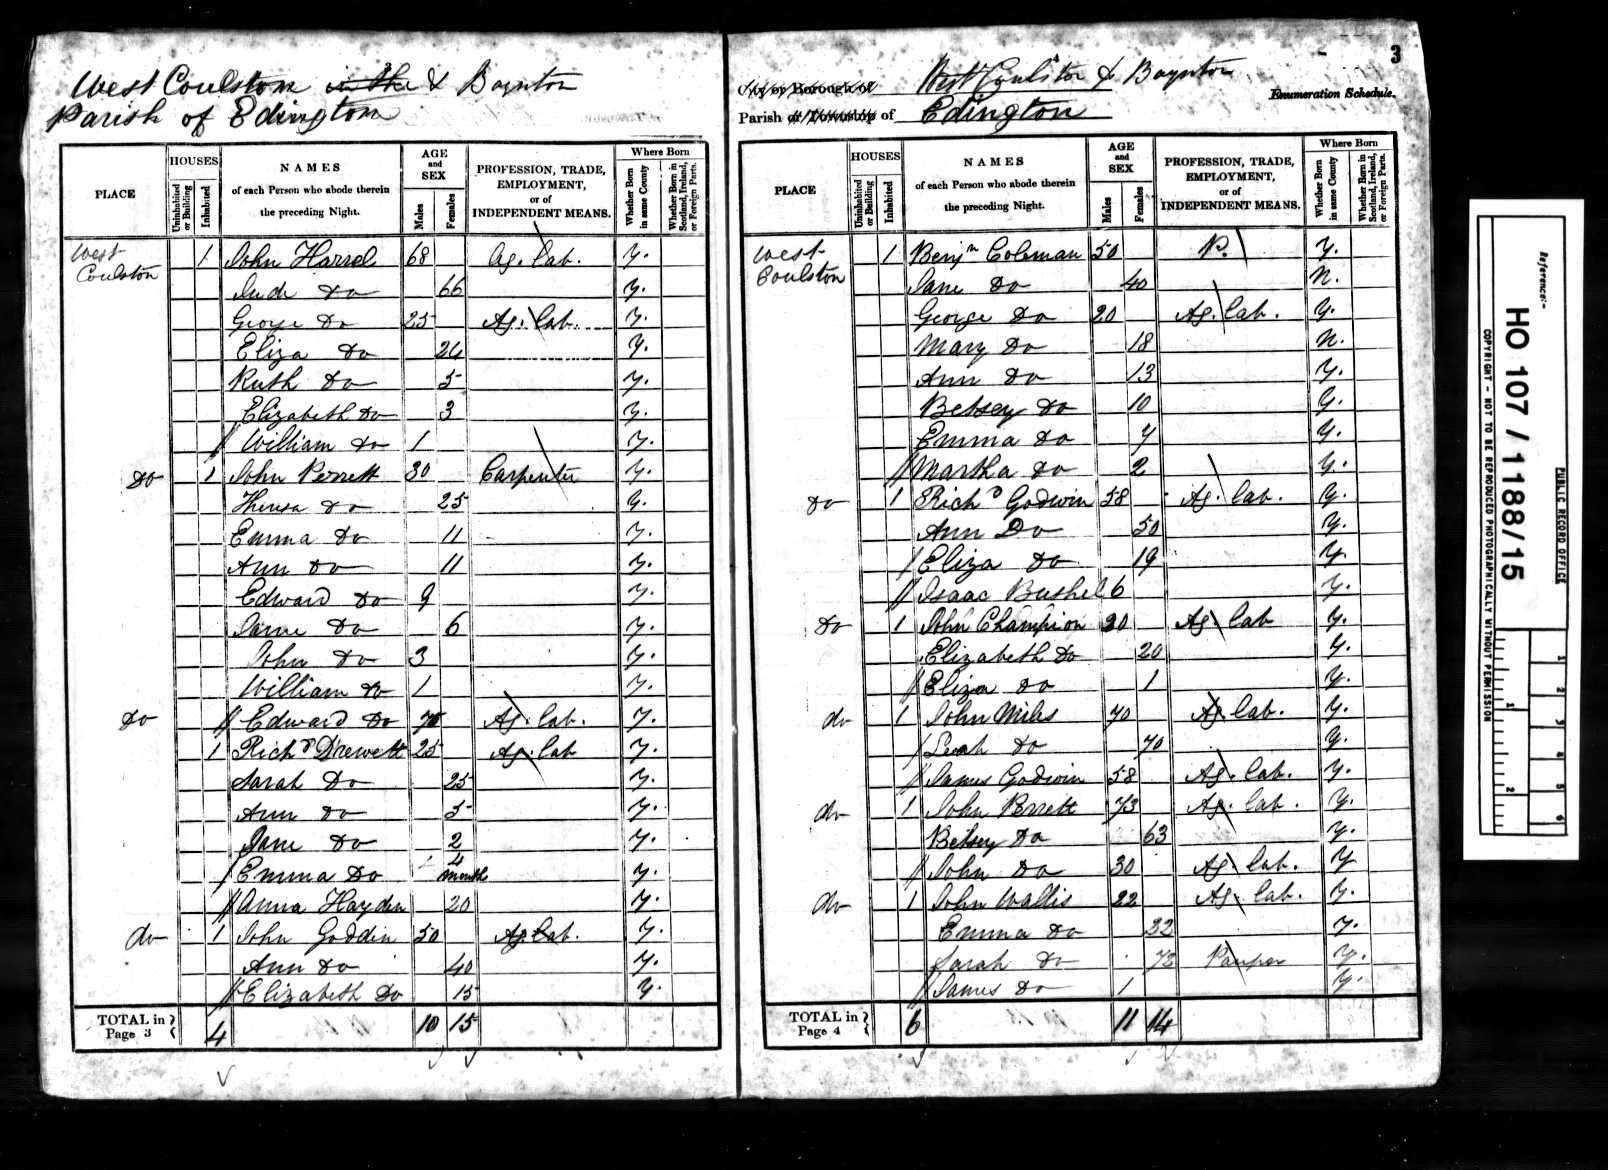 West Coulston in the & Boynton
Parish of Edington
PLACE
HOUSES
Uninhabited or Building
Inhabited
NAMES
of each Person who abode therein
the preceding Night.
AGE and SEX
Males
Females
PROFESSION, TRADE,
EMPLOYMENT,
or of
INDEPENDENT MEANS.
Where Born
Whether Born in same County
Whether Born in Scotland, Ireland, or Foreign Parts.
West Coulston 1 John Harrel 68 Ag. Lab. y.
Do 66 y.
George Do 25 Ag. Lab. y.
Eliza Do 24 y.
Ruth Do 5 y.
Elizabeth Do 3 y.
William Do 1 y.
Do 1 John Perrett 30 Carpenter y.
Theresa Do 25 y.
Emma Do 11 y.
Ann Do 11 y.
Edward Do 9 y.
Jane Do 6 y.
John Do 3 y.
William Do 1 y.
Do Edward Do Ag. Lab. y.
1 Richd Drewett 25 Ag. Lab y.
Sarah Do 25 y.
Ann Do 5 y.
Jane Do 2 y.
Emma Do 4 month y.
Anna Hayden 20 y.
do 1 John Goddin 50 Ag. Lab. y.
Ann Do 40 y.
Elizabeth Do 15 y.
TOTAL in Page 3 4 10 15
3
City or Borough of West Coulston & Boynton
Enumeration Schedule.
Parish or Township of Edington
PLACE
HOUSES
Uninhabited or Building
Inhabited
NAMES
of each Person who abode therein
the preceding Night.
AGE and SEX
Males
Females
PROFESSION, TRADE,
EMPLOYMENT,
or of
INDEPENDENT MEANS.
Where Born
Whether Born in same County
Whether Born in Scotland, Ireland, or Foreign Parts.
West Coulston 1 Benjn Coleman 50 P. y.
Jane Do 40 N.
George Do 20 Ag. Lab. y.
Mary Do 18 N.
Ann Do 13 y.
Betsey Do 10 y.
Emma Do 7 y.
Martha Do 2 y.
Do 1 Richd Godwin 58 Ag. Lab. y.
Ann Do 50 y.
Eliza Do 19 y.
Isaac Bushel 6 y.
Do 1 John Champion 20 Ag. Lab y.
Elizabeth Do 20 y.
Eliza Do 1 y.
do 1 John Miles 70 Ag. Lab. y.
Leah Do 70 y.
James Godwin 58 Ag. Lab. y.
do 1 John Perrett 73 Ag. Lab. y.
Betsey Do 63 y.
John Do 30 Ag. Lab. y
do 1 John Wallis 22 Ag. Lab. y.
Emma Do 22 y.
Sarah Do 72 Pauper y.
James Do 1 y.
TOTAL in Page 4 6 11 14
Reference:-
HO 107/1188/15
PUBLIC RECORD OFFICE
COPYRIGHT - NOT TO BE REPRODUCED PHOTOGRAPHICALLY WITHOUT PERMISSION
1
2
3
4
5
6
1
2